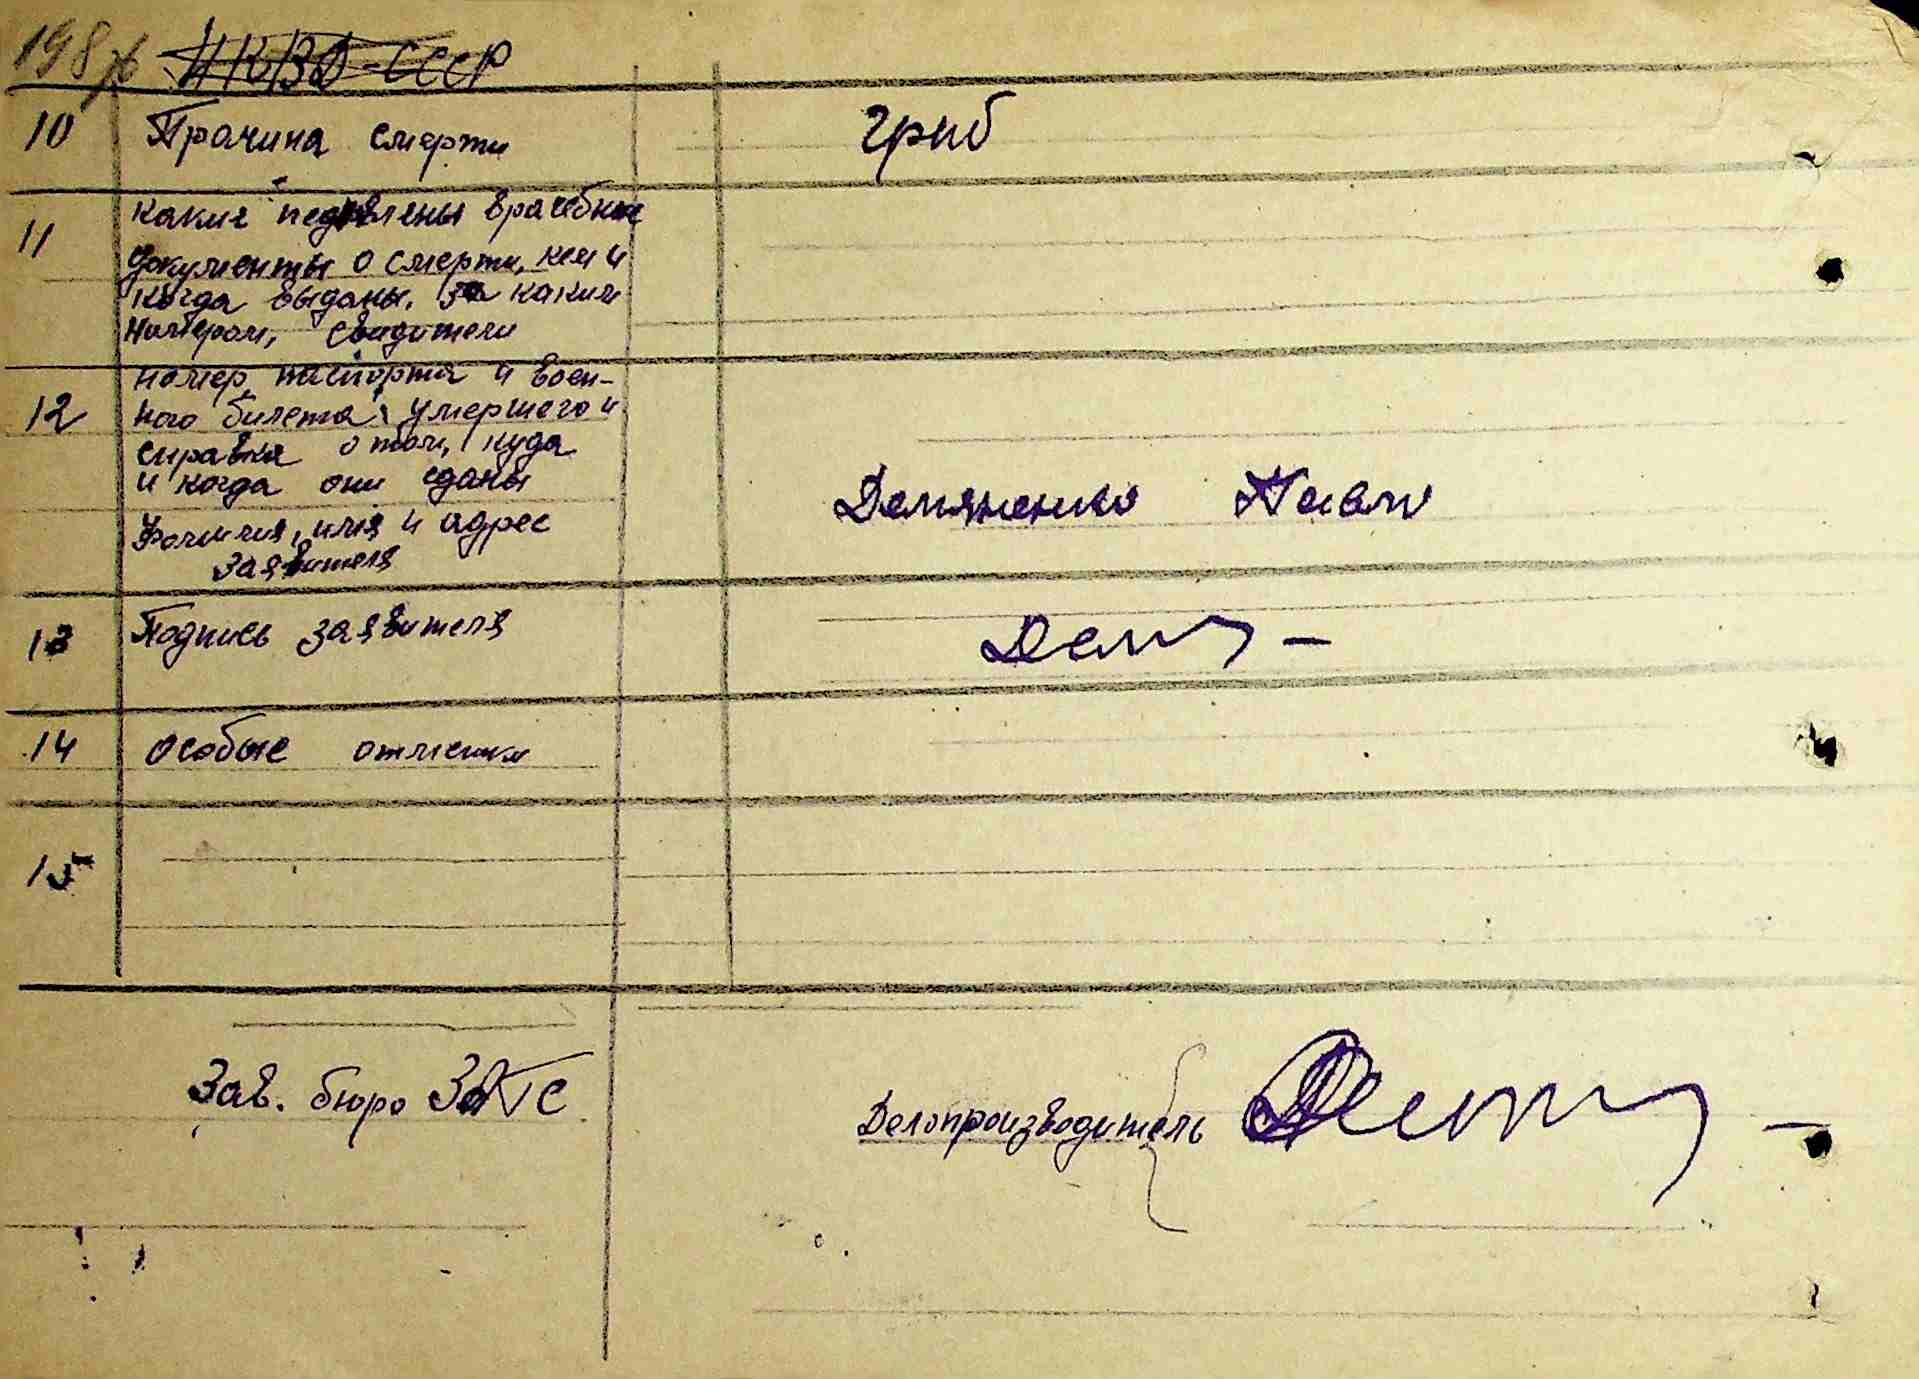 198
НКВД-СССР
10 Причина смерти гриб
11 какие педявлены врачебные
документы о смерти, кем и
когда выданы, за каким
номером, свидители
номер паспорта и воен-
12 ного билета умершего и
справка о том, куда
и когда они сданы
Демяненко Павло
Фамилия, имя и адрес
заявителя
13 Подпись заявителя Дем
14 особые отметки
15
Зав. бюро ЗАГС
Делопроизводитель